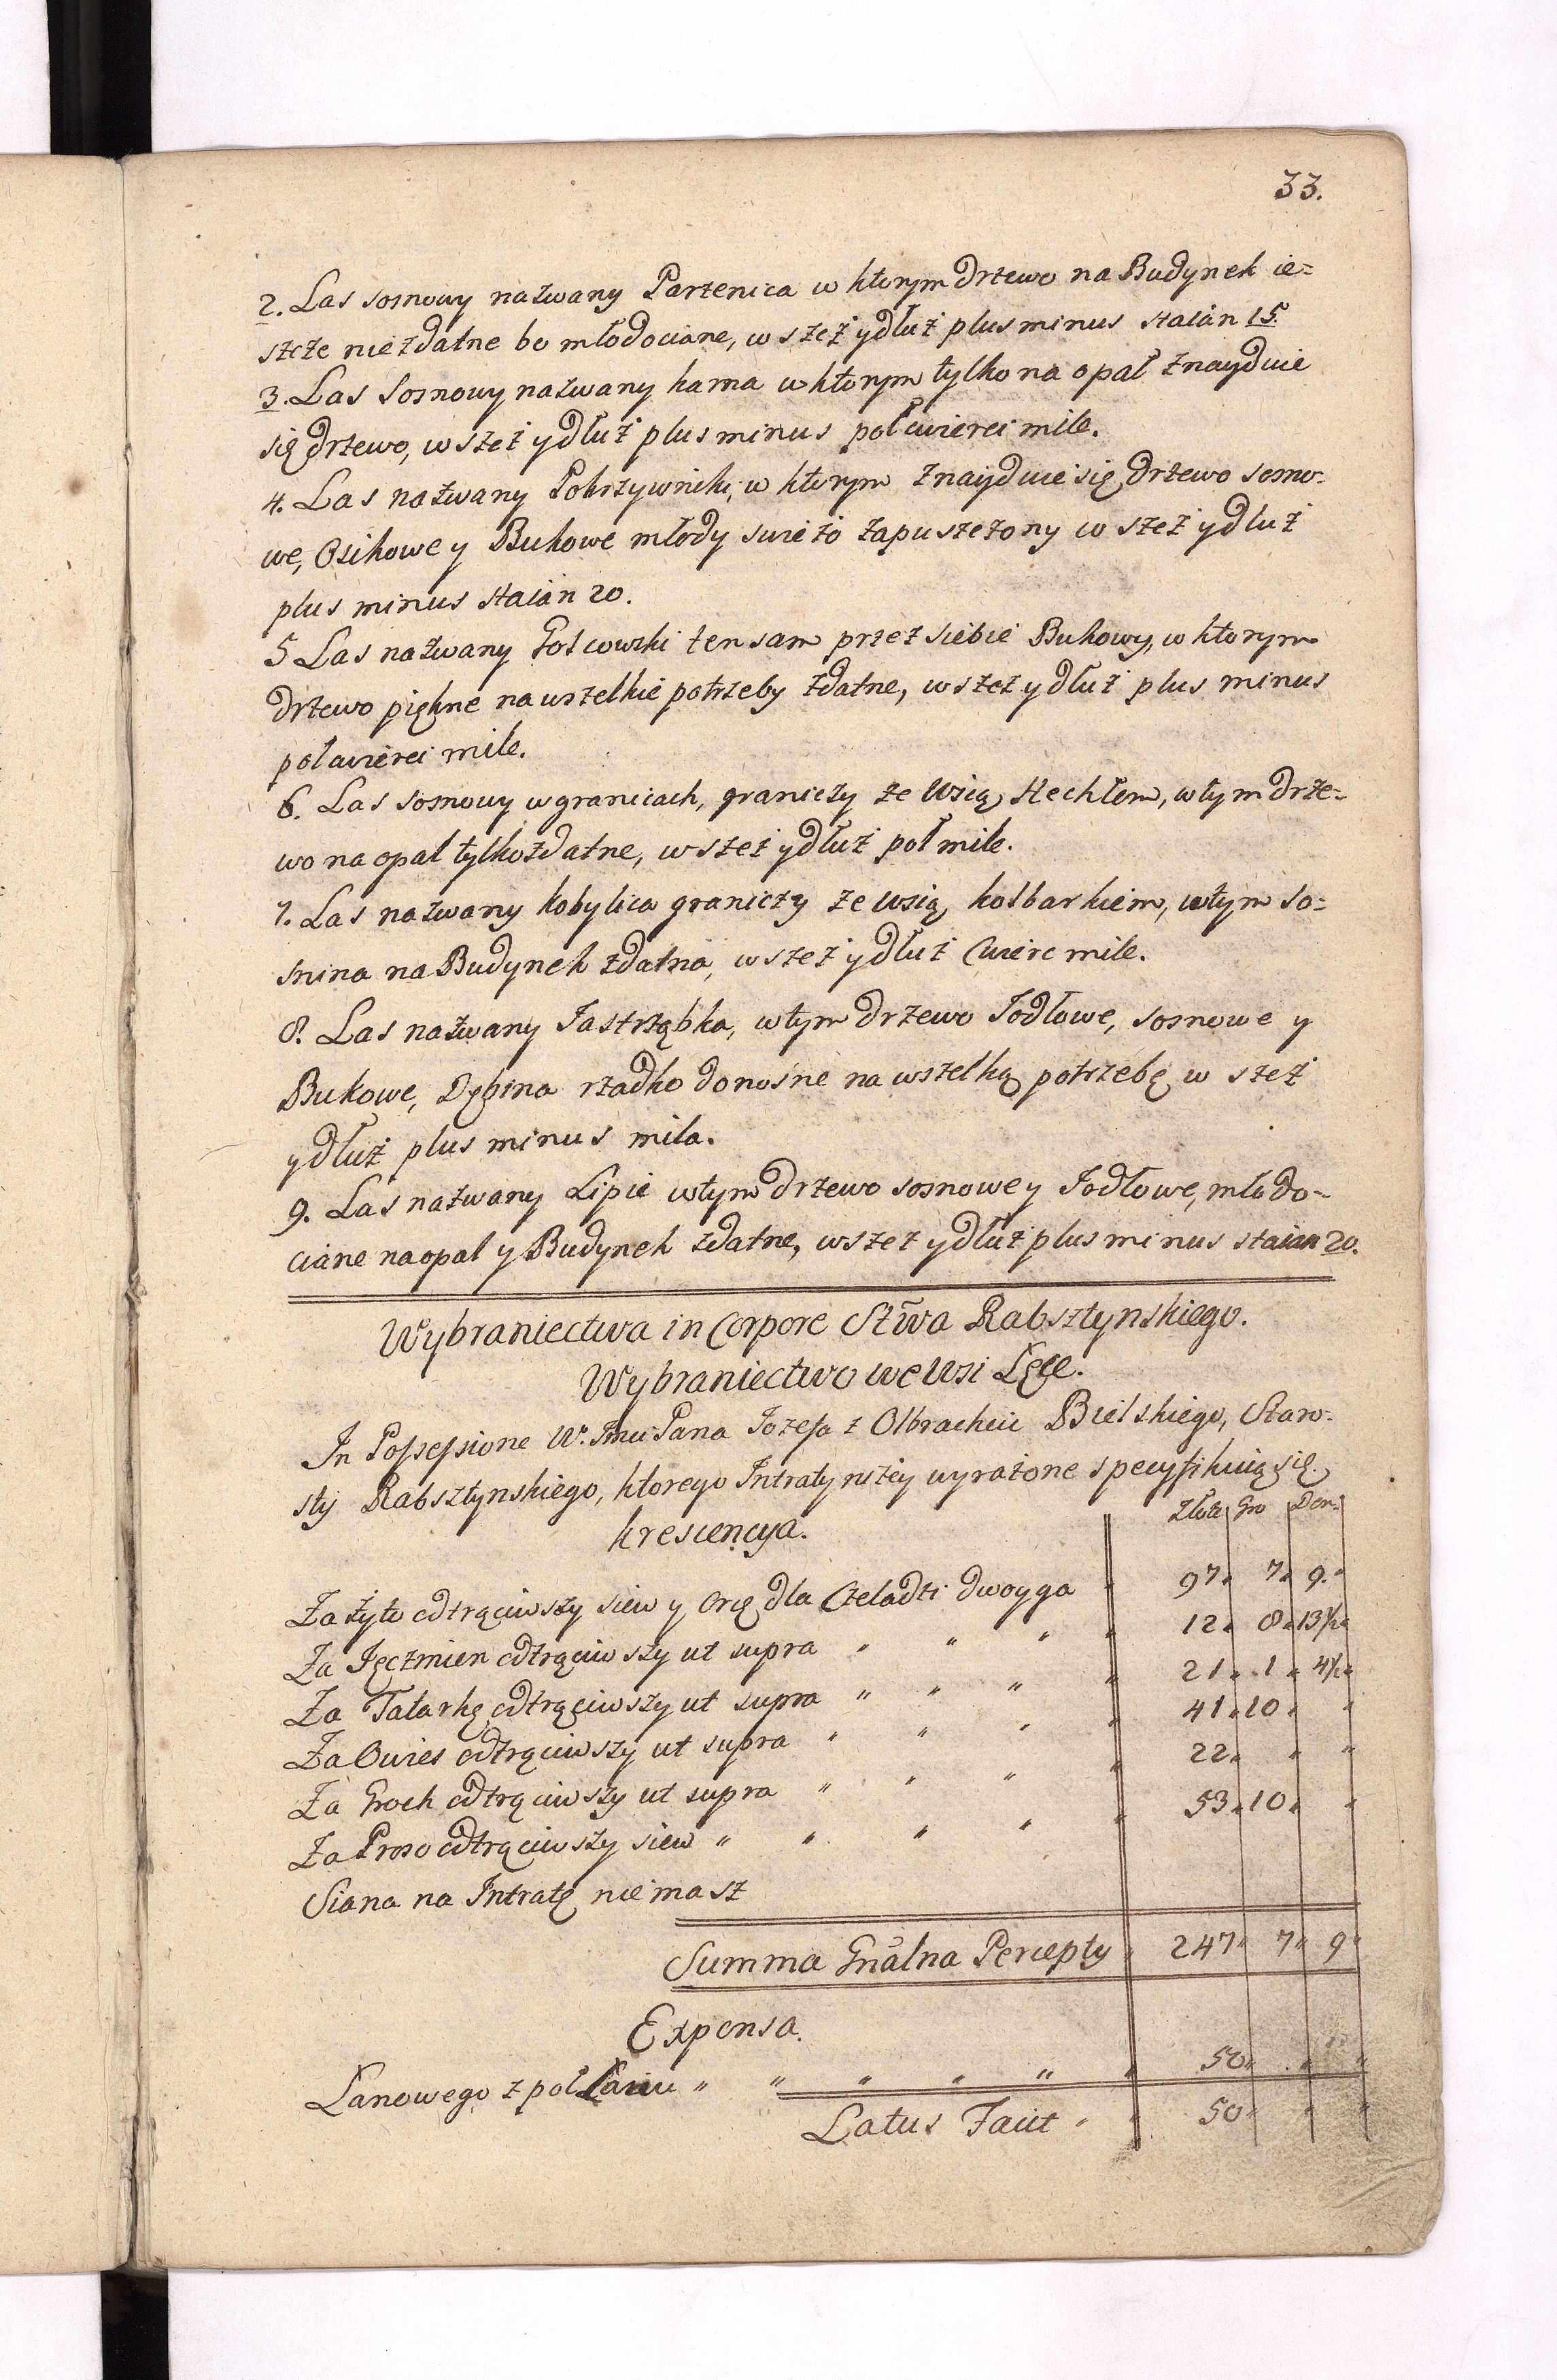 33.
2. Las sosnowy nazwany Parzenica w ktorym drzewo na Budynek ie=
szcze niezdatne bo młodociane, w szez y dłuż plus minus staian 15.
3. Las Sosnowy nazwany karna w ktorym tylko na opał znayduie
się drzewo, w szez y dłuż plus minus poł cwierci mile.
4. Las nazwany Pokrzywnik, w ktorym znayduie się drzewo sosno-
we, Osikowe y Bukowe młody swieżo zapuszczony w szez y dłuż
plus minus staian 20.
5 Las nazwany ten sam przez siebie Bukowy, w ktorym
drzewo piękne na wszelkie potrzeby zdatne, w szez y dłuż plus minus
poł cwierci mile.
6. Las sosnowy w granicach, graniczy ze wsią Kechłem, w tym drze=
wo na opał tylko zdatne, w szez y dłuż poł mile.
7. Las nazwany kobylica graniczy ze wsią kolbarkiem, w tym so=
snina na Budynek zdatna, w szez y dłuż Cwierc mile.
8. Las nazwany Jastrząbka, w tym drzewo Jodłowe, sosnowe y
Bukowe, Dębina rzadko donosne na wszelką potrzebę w szez
y dłuż plus minus mila.
9. Las nazwany Lipie w tym drzewo sosnowe y Jodłowe, młodo-
ciane na opał y Budynek zdatne, w szez y dłuż plus minus staian 20.
Wybraniectwa in Corpore Stwa Rabsztynskiego.
Wybraniectwo we Wsi Łęce.
In Possessione W. Jmci Pana Jozefa z Olbrachcic Bielskiego, Staro-
sty Rabsztynskiego, ktorego Intraty niżey wyrażone specyfikuią się
krescencya. Złote Gro Den:
Za żyto odtrąciwszy siew y Orę dla Czeladzi dwoyga " 97 " 7 " 9 "
Za Jęczmien odtrąciwszy ut supra " " " " 12 " 8 " 13½ "
Za Tatarkę odtrąciwszy ut supra " " " " 21 " 1 " 4½ "
Za Owies odtrąciwszy ut supra " " " " 41 " 10 " "
Za Groch odtrąciwszy ut supra " " " " 22 " " "
Za Proso odtrąciwszy siew " " " " " 53 " 10 " "
Siana na Intratę niemasz
Summa Gnalna Percepty " 247 " 7 " 9 "
Expensa.
Łanowego z poł Łanu " " " " " " 50 " " "
Latus Facit " " 50 " " "